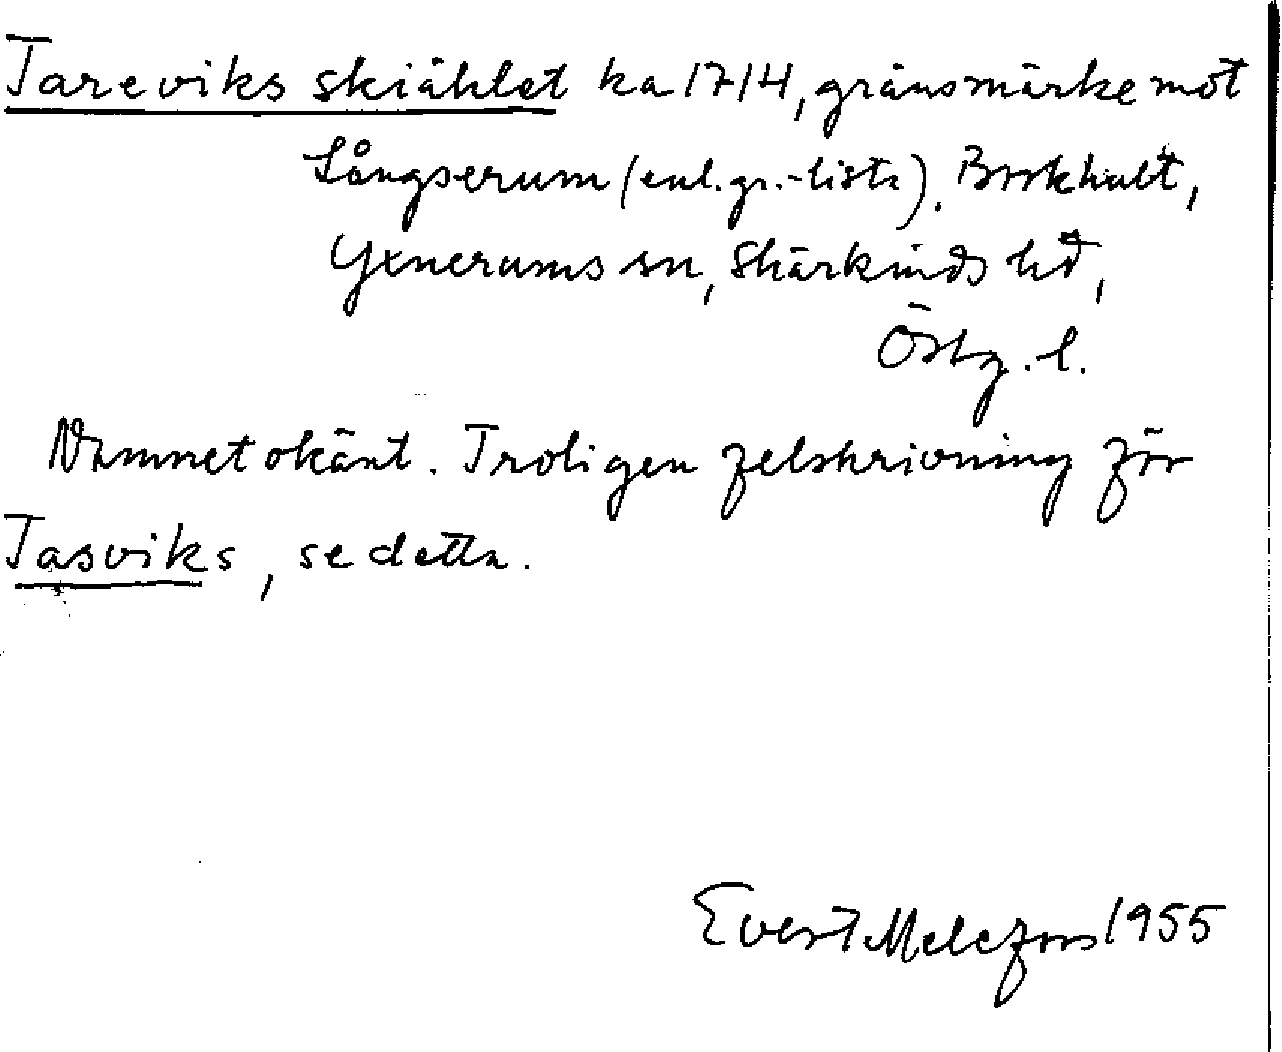 Tareviks skiählet ka 1714, gränsmärke mot
Långserum (enl. gr.-lista). Borkhult,
Yxnerums sn, Skärkinds hd,
Östg. l.
Namnet okänt. Troligen felskrivning för
Tasviks, se detta.
Evert Melefors 1955